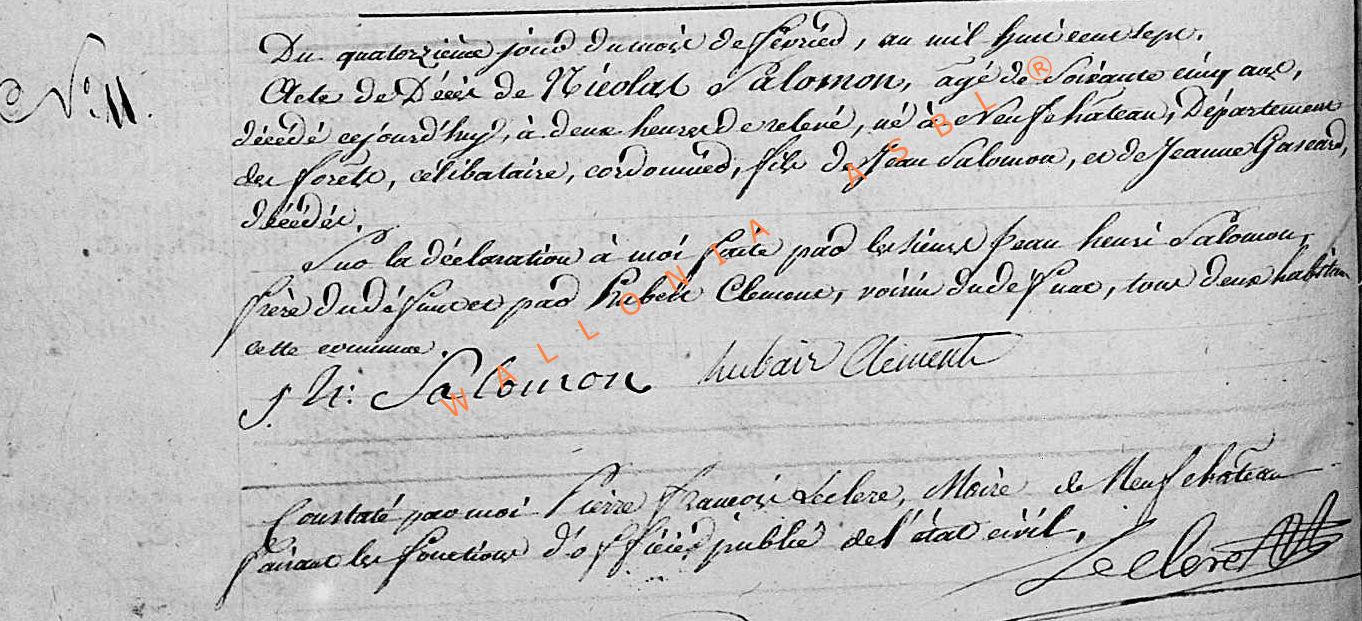 N.º 11.
Du quatorzième jour du mois de février, an mil huit cent sept.
Acte de Décès de Nicolas Salomon, agé de Soixante cinq ans,
décédé cejourd'huy, à deux heures de relevé, né à Neufchâteau, Département
des forets, célibataire, cordonnier, fils de Jean Salomon, et de Jeanne Gascard,
décédés.
Sur la déclaration à moi faite par les sieurs Jean henri Salomon,
frère du défunt et par Clement, voisin du défunt, tous deux
cette commune.
J. h: Salomon hubair Clement
Constaté par moi Pierre François Leclere, Maire de Neufchâteau
faisant les fonctions d'officier public de l'état civil.
Leclere
WALLONIA ASBL ®